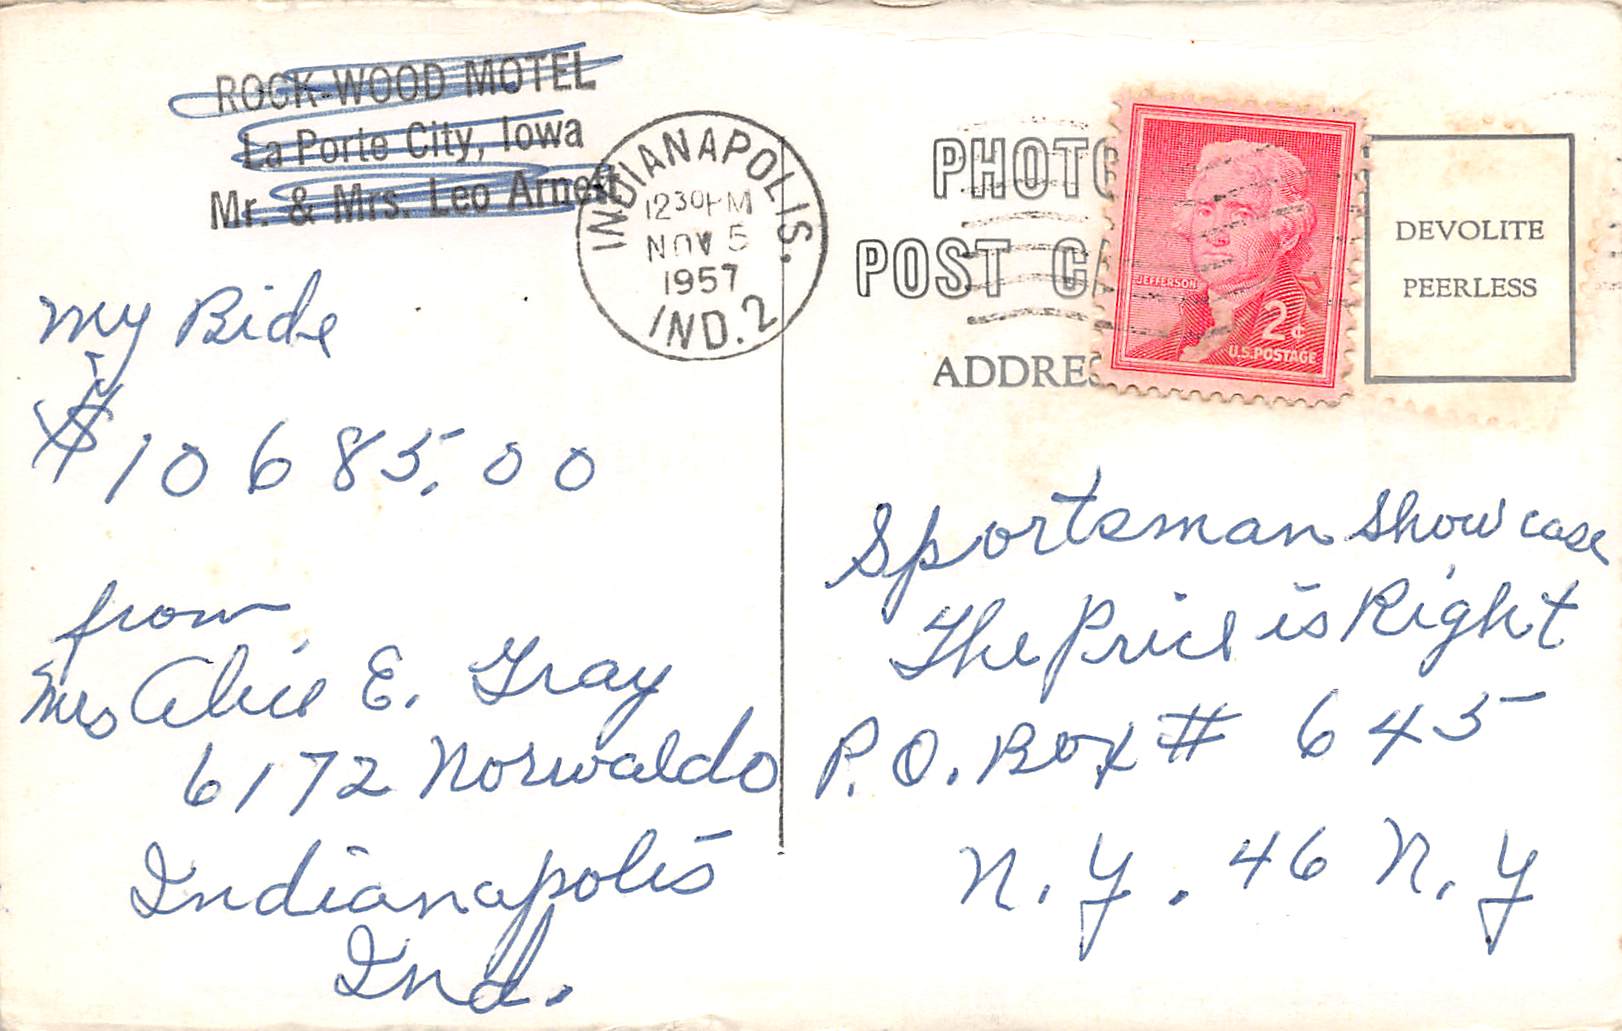 ROCK-WOOD MOTEL
La Porte City, Iowa
Mr. & Mrs. Leo Arnett
INDIANAPOLIS.
12 30 PM
NOV 5
1957
IND. 2
My Bide
is
$10685.00
from
Mrs Alice E. Gray
6172 Norwaldo
Indianapolis
Ind.
PHOTO
POST CA
ADDRES
JEFFERSON
2¢
U.S. POSTAGE
DEVOLITE
PEERLESS
Sportsman Showcase
The Price is Right
P.O. Box # 645
N.Y. 46 N.Y